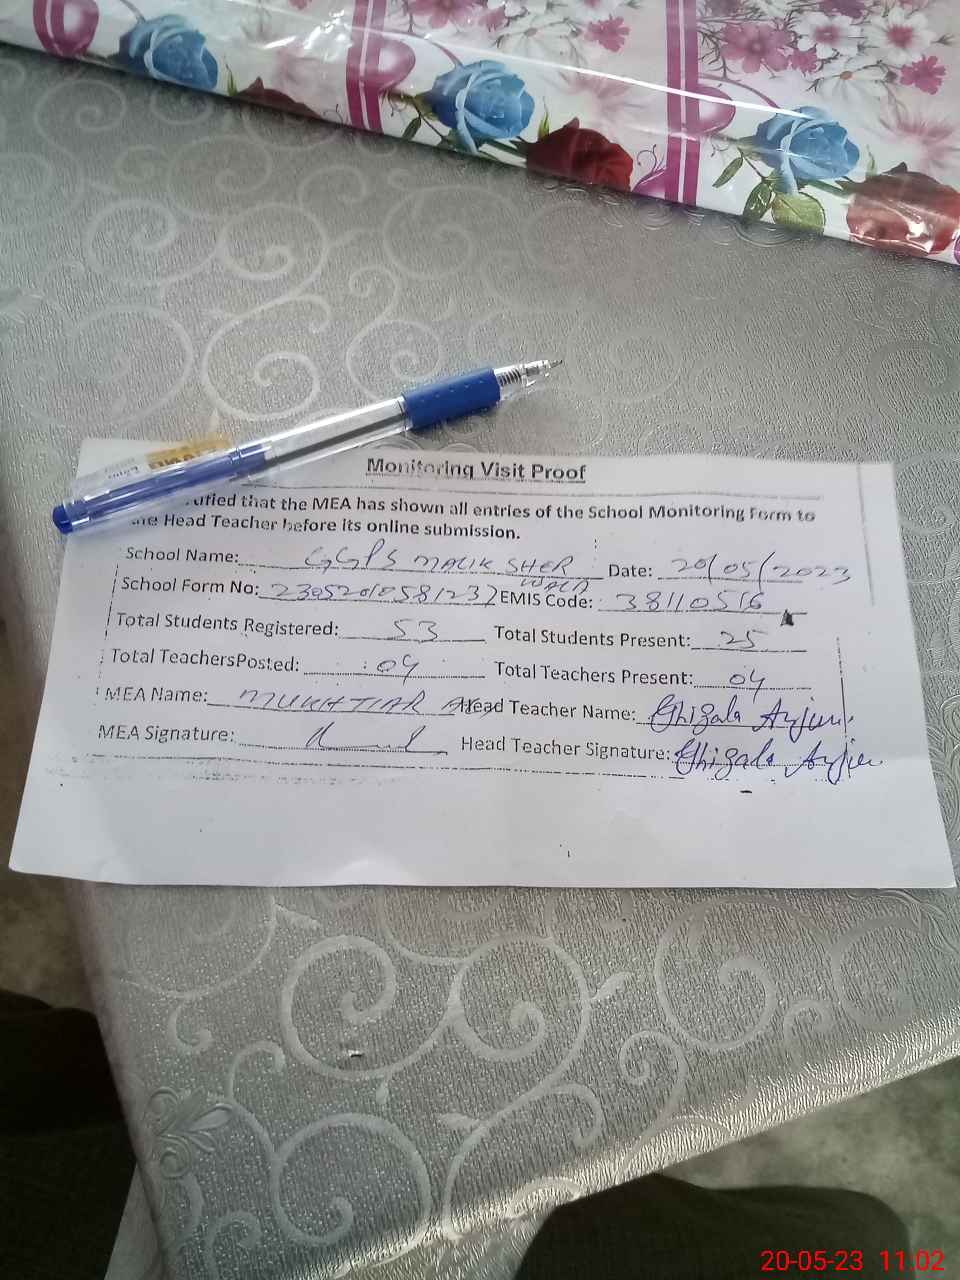 Monitoring Visit Proof
that the MEA has shown all entries of the School Monitoring Form to
the Head Teacher before its online submission.
School Name: GGPS MALIK SHER WALA Date: 20/05/2023
School Form No: 23052010581237 EMIS Code: 38110516
Total Students Registered: 53 Total Students Present: 25
Total TeachersPosted: 04 Total Teachers Present: 04
MEA Name: MUKHTIAR Head Teacher Name: Ghizala Anjum
MEA Signature: Head Teacher Signature: Ghizala
20-05-23 11.02